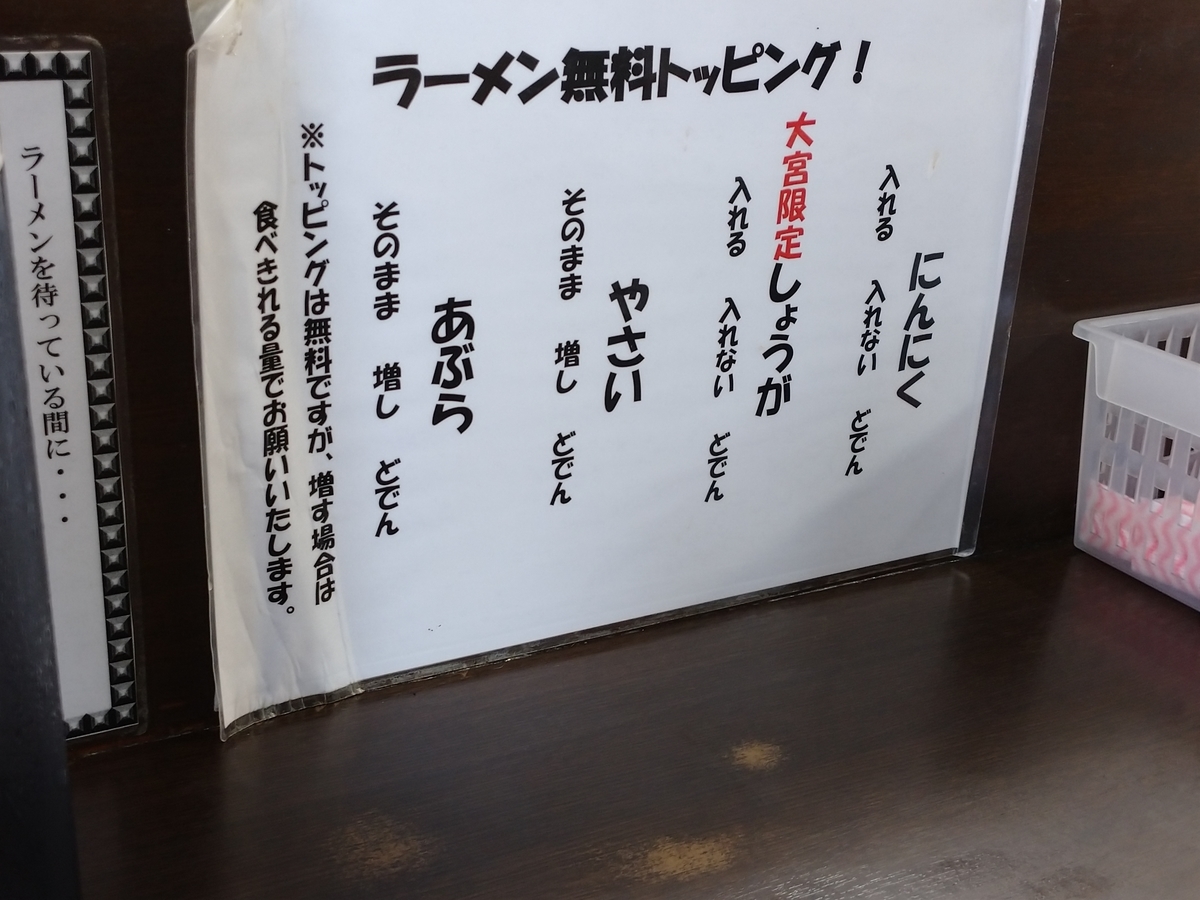 ラーメン無料トッピング!
にんにく
入れる 入れない どでん
大宮限定しょうが
入れる 入れない どでん
やさい
そのまま 増し どでん
あぶら
そのまま 増し どでん
※トッピングは無料ですが、増す場合は
食べきれる量でお願いいたします。
ラーメンを待っている間に・・・